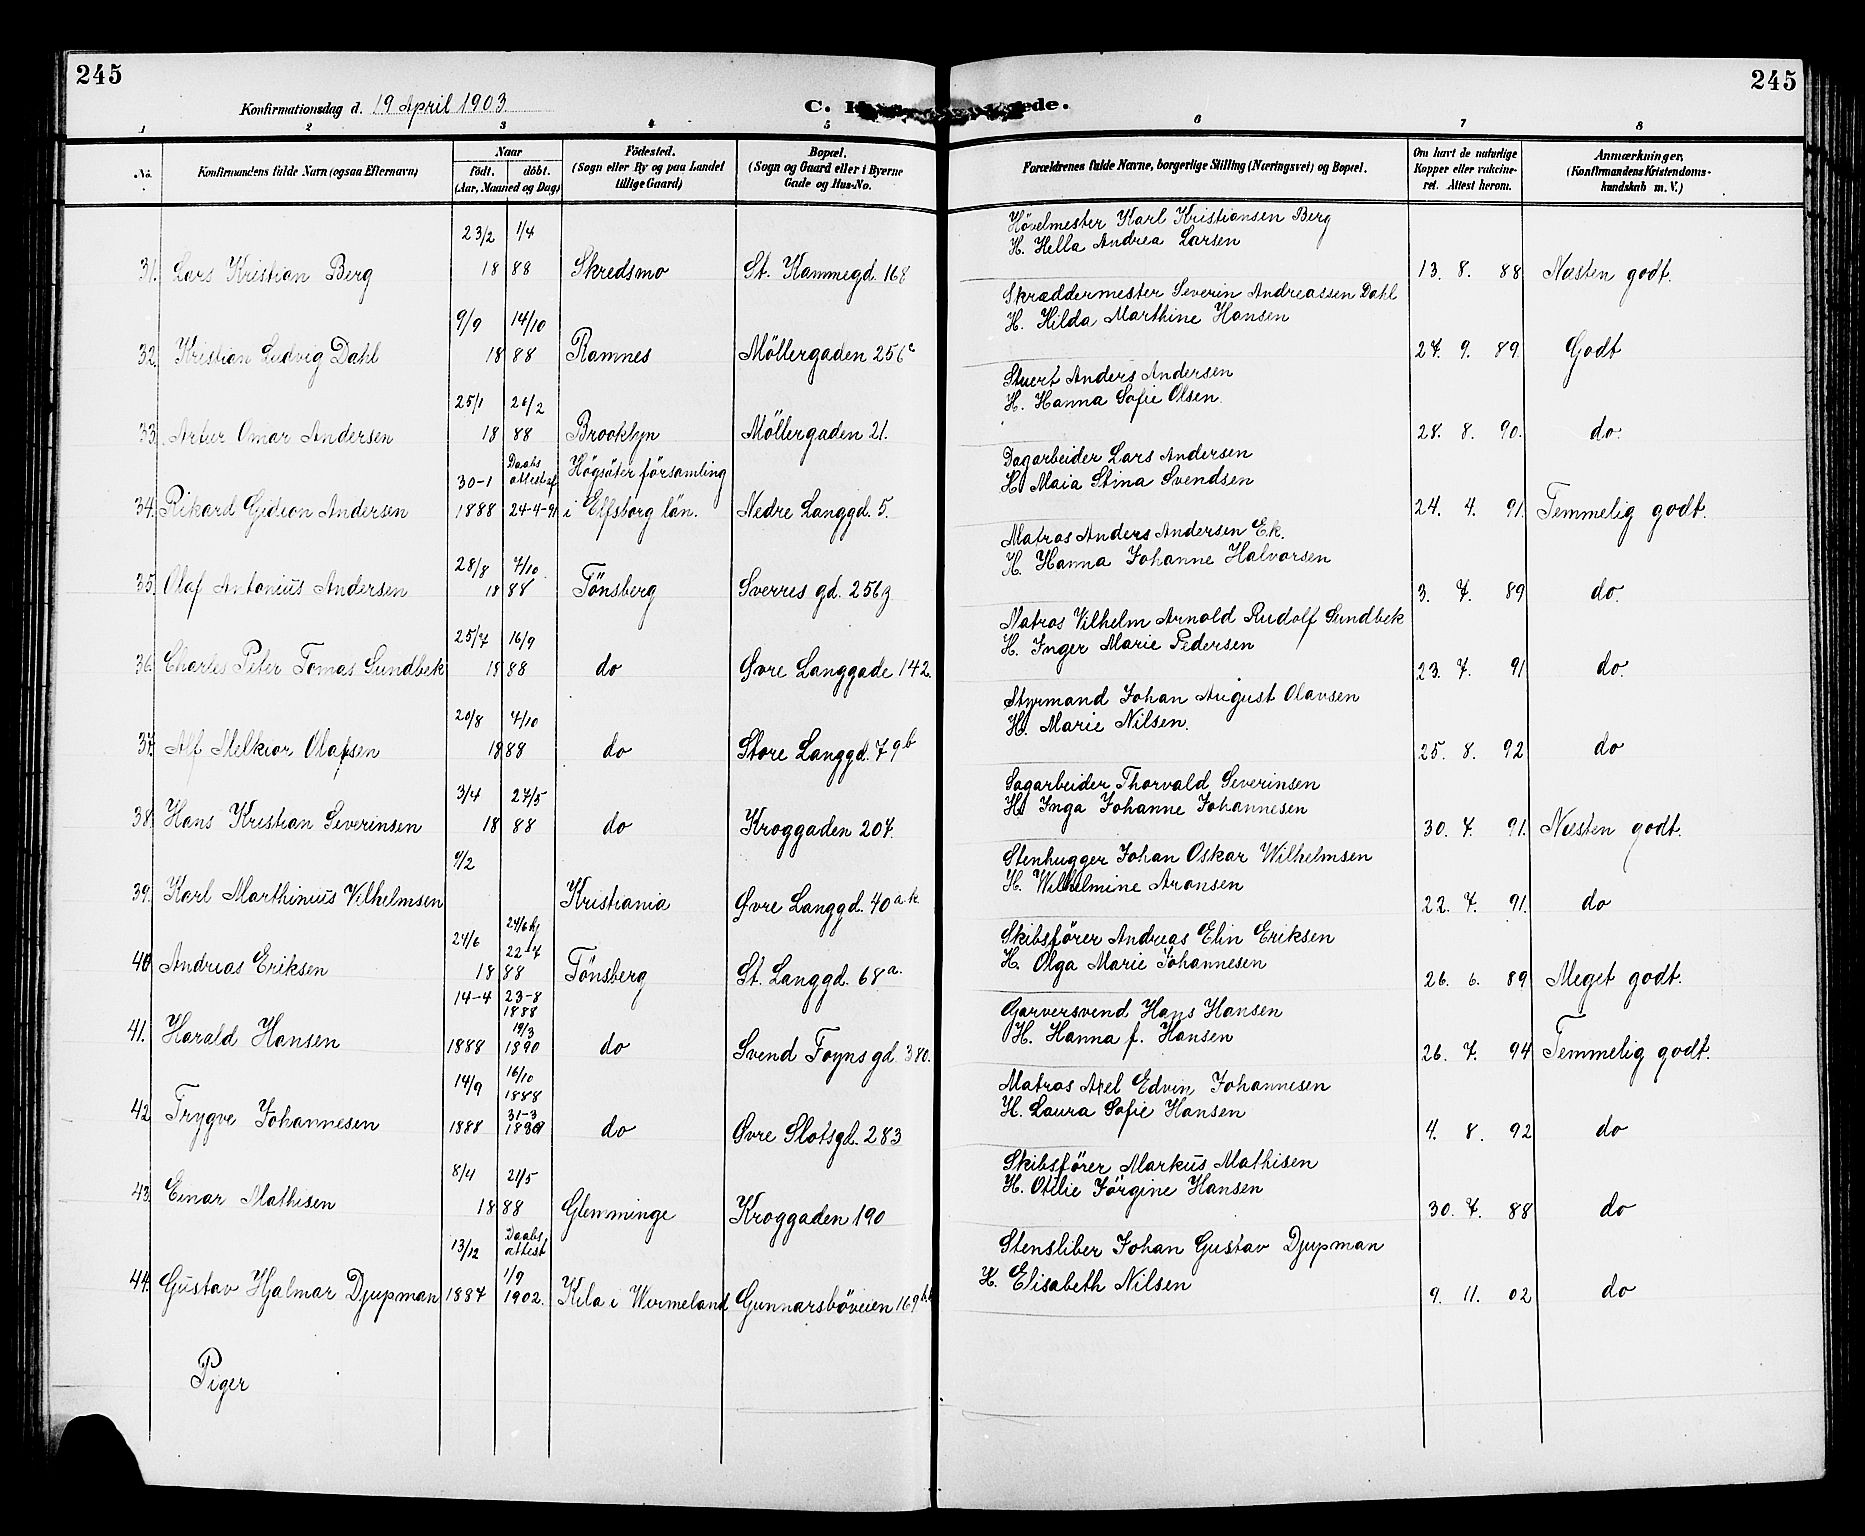 245
245
Konfirmationsdag d. 19 April 1903
C. ede.
1 2 3 4 5 6 7 8
No. Konfirmandens fulde Navn (ogsaa Efternavn) Naar født. døbt. (Aar, Maaned og Dag) Fødested. (Sogn eller By og paa Landet tillige Gaard) Bopæl. (Sogn og Gaard eller i Byerne Gade og Hus-No. Forældrenes fulde Navne, borgerlige Stilling (Næringsvei) og Bopæl. Om havt de naturlige Kopper eller vakcineret. Attest herom. Anmærkninger, (Konfirmandens Kristendomskundskab m. V.)
23/2 1/4 Høvelmester Karl Kristiansen Berg
H. Hella Andrea Larsen
31. Lars Kristian Berg 18 88 Skredsmo St. Kammegd. 168 13. 8. 88 Næsten godt.
9/9 14/10 Skræddermester Severin Andreassen Dahl
H. Hilda Marthine Hansen
32. Kristian Ludvig Dahl 18 88 Ramnes Möllergaden 256c 27. 9. 89. Godt
25/1 26/2 Stuert Anders Andersen
H. Hanna Sofie Olsen.
33. Artur Omar Andersen 18 88 Brooklyn Möllergaden 21. 28. 8. 90. do.
30-1 Daabs attest af Högsäter församling Dagarbeider Lars Andersen
H. Maia Stina Svendsen
34. Rikard Gideon Andersen 1888 24-4-91 i Elfsborg län. Nedre Langgd. 5. 24. 4. 91. Temmelig godt.
28/8 7/10 Matros Anders Andersen Ek.
H. Hanna Johanne Halvorsen
35. Olaf Antonius Andersen 18 88 Tönsberg Sverres gd. 256g 3. 7. 89 do.
25/7 16/9 Matros Vilhelm Arnold Rudolf Sundbek
H. Inger Marie Pedersen
36. Charles Peter Tomas Sundbek 18 88 do Øvre Langgade 142. 23. 7. 91 do.
20/8 7/10 Styrmand Johan August Olavsen
H. Marie Nilsen.
37. Alf Melkior Olafsen 18 88 do Store Langgd. 79b 25. 8. 92 do
3/4 27/5 Sagarbeider Thorvald Severinsen
H. Inga Johanne Johannesen
38. Hans Kristian Severinsen 18 88 do Kroggaden 207. 30. 7. 91. Næsten godt.
9/2 Stenhugger Johan Oskar Wilhelmsen
H. Wilhelmine Aronsen
39. Karl Marthinius Vilhelmsen Kristiania Øvre Langgd. 40 a.k. 22. 7. 91. do
24/6 24/6 hj 22-7 Skibsförer Andreas Elin Eriksen
H. Olga Marie Johannesen
40. Andreas Eriksen 18 88 Tönsberg St. Langgd. 68a. 26. 6. 89 Meget godt.
14-4 23-8 1888 Garversvend Hans Hansen
H. Hanna f. Hansen
41. Harald Hansen 1888 19/3 1890 do Svend Foyns gd. 380. 26. 7. 94 Temmelig godt.
14/9 16/10 1888 Matros Axel Edvin Johannesen
H. Laura Sofie Hansen
42. Trygve Johannesen 1888 31-3 do Øvre Slotsgd. 283 4. 8. 92 do
8/4 21/5 Skibsförer Markus Mathisen
H. Otilie Jörgine Hansen
43. Einar Mathisen 18 88 Glemminge Kroggaden 190 30. 7. 88 do
13/12 Daabs attest Stensliber Johan Gustav Djupman
H. Elisabeth Nilsen
44. Gustav Hjalmar Djupman 1887 1/9 1902. Kila i Wermeland Gunnarsböveien 169 9. 11. 02 do
Piger